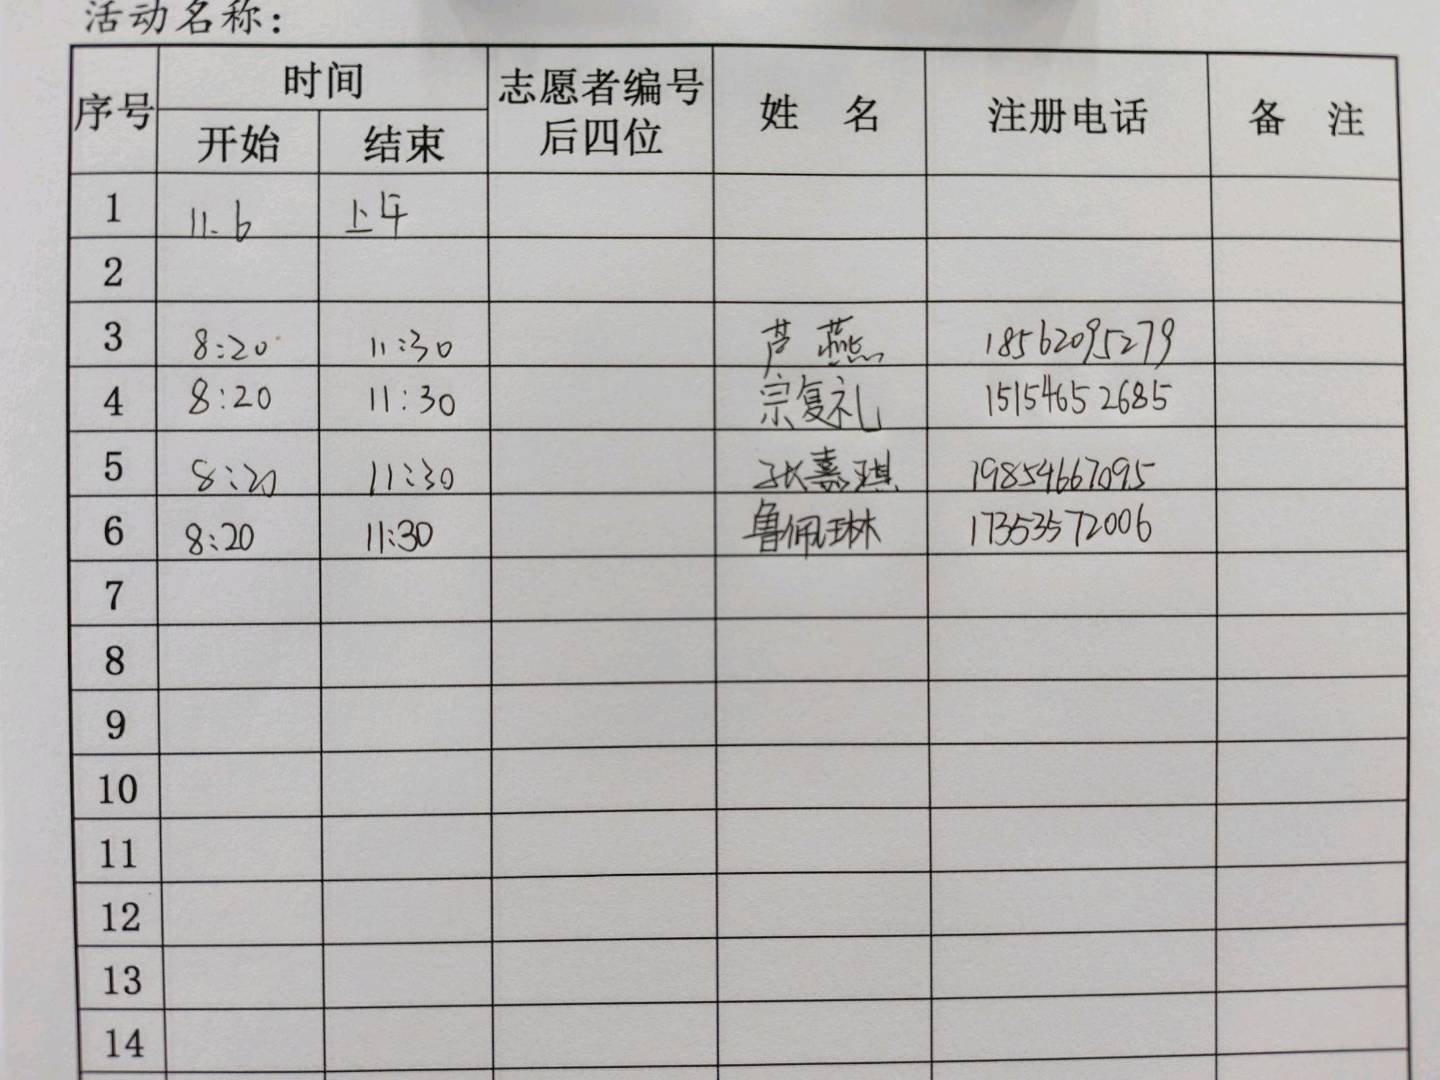 活动名称：
序号 时间 志愿者编号后四位 姓 名 注册电话 备 注
开始 结束
1 11.6 上午
2
3 8:20 11:30 芦燕 18562095279
4 8:20 11:30 宗复礼 15154652685
5 8:20 11:30 张嘉琪 19854667095
6 8:20 11:30 鲁佩琳 17353572006
7
8
9
10
11
12
13
14